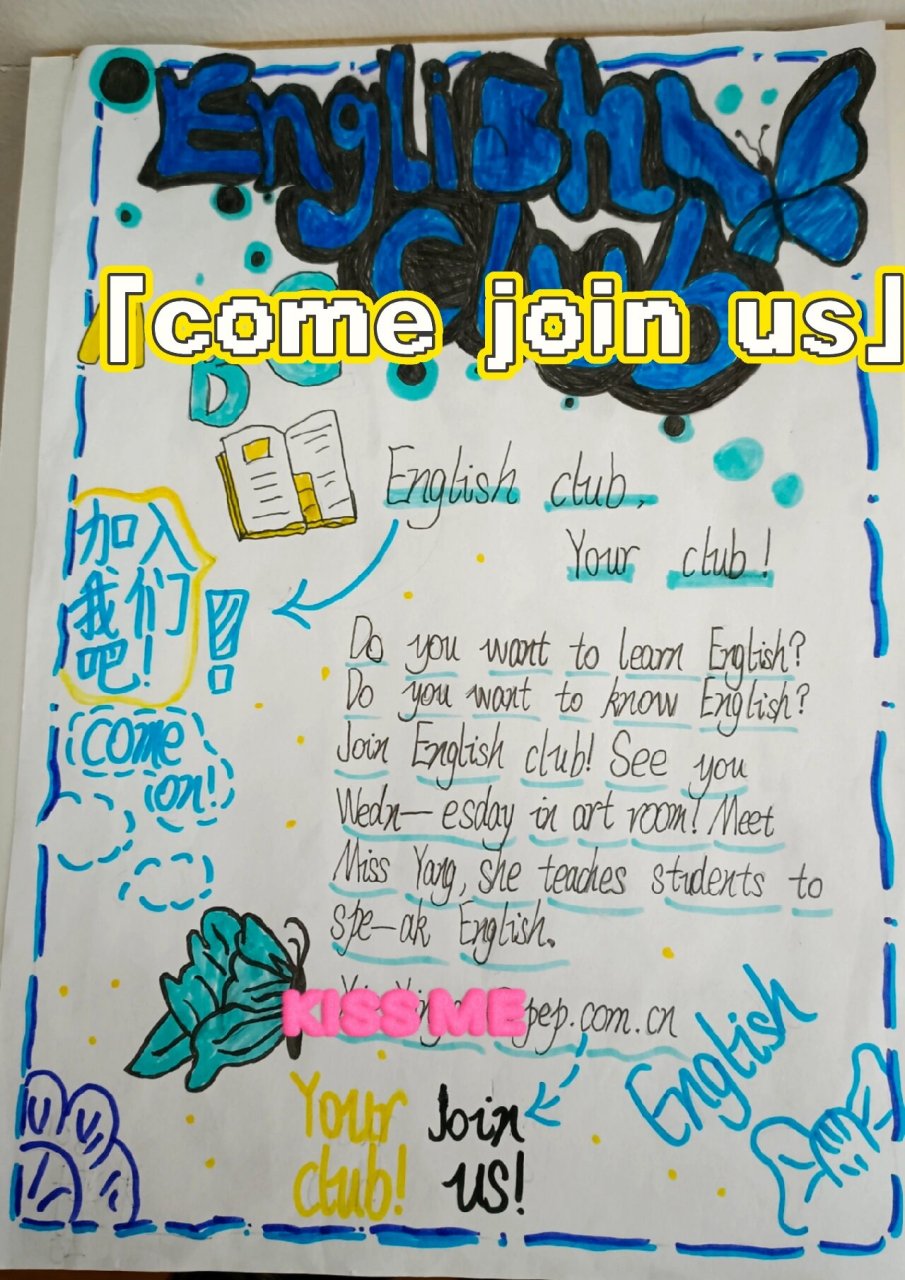 English
Club
「come join us」
D
English club,
Your club!
加入
我们
吧!
Do you want to learn English?
Do you want to know English?
Join English club! See you
Wedn—esday in art room! Meet
Miss Yang, she teaches students to
spe—ak English.
come
on!
KISS ME
pep.com.cn
English
Your Join
club! us!